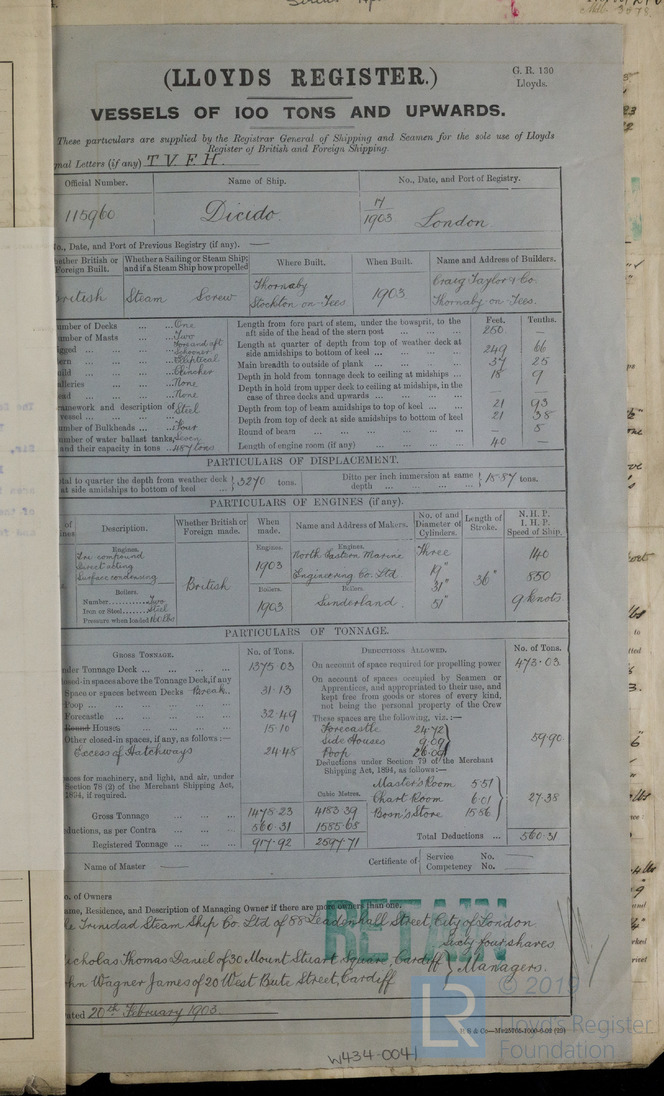 (LLOYDS REGISTER.)
G. R. 130
Lloyds.
VESSELS OF 100 TONS AND UPWARDS.
These particulars are supplied by the Registrar General of Shipping and Seamen for the sole use of Lloyds
Register of British and Foreign Shipping.
nal Letters (if any) T. V. F. H.
Official Number. Name of Ship. No., Date, and Port of Registry.
115960 Dicido 17/1903 London
o., Date, and Port of Previous Registry (if any). —
hether British or Foreign Built. Whether a Sailing or Steam Ship; and if a Steam Ship how propelled Where Built. When Built. Name and Address of Builders.
British Steam Screw Thornaby Stockton-on-Tees 1903 Craig Taylor & Co. Thornaby on Tees.
Feet. Tenths.
umber of Decks ... ... One
umber of Masts ... ... Two
gged ... ... Fore and aft Schooner
ern ... ... Elliptical
uild ... ... Clincher
alleries ... ... None
ead ... ... None
ramework and description of vessel ... Steel
umber of Bulkheads ... Four
umber of water ballast tanks, and their capacity in tons Seven 457 tons
Length from fore part of stem, under the bowsprit, to the aft side of the head of the stern post 250 —
Length at quarter of depth from top of weather deck at side amidships to bottom of keel 249 66
Main breadth to outside of plank 37 25
Depth in hold from tonnage deck to ceiling at midships 18 9
Depth in hold from upper deck to ceiling at midships, in the case of three decks and upwards — —
Depth from top of beam amidships to top of keel 21 93
Depth from top of deck at side amidships to bottom of keel 21 38
Round of beam — 5
Length of engine room (if any) 40 —
PARTICULARS OF DISPLACEMENT.
tal to quarter the depth from weather deck at side amidships to bottom of keel 3270 tons. Ditto per inch immersion at same depth 18·57 tons.
PARTICULARS OF ENGINES (if any).
of ines Description. Whether British or Foreign made. When made. Name and Address of Makers. No. of and Diameter of Cylinders. Length of Stroke. N. H. P. I. H. P. Speed of Ship.
Engines. Engines. Engines.
Tri compound
Direct acting
Surface condensing
British
1903 North Eastern Marine Engineering Co. Ltd
Three 19" 31" 51" 36" 140 850 9 knots
Boilers. Boilers. Boilers.
Number Two
Iron or Steel Steel
Pressure when loaded 160 lbs
1903 Sunderland
PARTICULARS OF TONNAGE.
Gross Tonnage. No. of Tons. Deductions Allowed. No. of Tons.
nder Tonnage Deck ... 1375·03
osed-in spaces above the Tonnage Deck, if any
Space or spaces between Decks Break. 31·13
Poop ...
Forecastle ... 32·49
Round Houses 15·10
Other closed-in spaces, if any, as follows:—
Excess of Hatchways 24·48
aces for machinery, and light, and air, under Section 78 (2) of the Merchant Shipping Act, 1894, if required.
Cubic Metres.
Gross Tonnage 1478·23 4183·39
eductions, as per Contra 560·31 1585·68
Registered Tonnage 917·92 2597·71
On account of space required for propelling power 473·03
On account of spaces occupied by Seamen or
Apprentices, and appropriated to their use, and
kept free from goods or stores of every kind,
not being the personal property of the Crew
These spaces are the following, viz.:—
Forecastle 24·72
Side Houses 9·09
Poop 26·09
59·90
Deductions under Section 79 of the Merchant
Shipping Act, 1894, as follows:—
Master's Room 5·51
Chart Room 6·01
Bosn's Store 15·86
27·38
Total Deductions ... 560·31
Name of Master —
Certificate of Service Competency No. — No.
o. of Owners
ame, Residence, and Description of Managing Owner if there are more owners than one.
he Trinidad Steam Ship Co. Ltd of 88 Leadenhall Street, City of London
Sixty four shares
icholas Thomas Daniel of 30 Mount Stuart Square, Cardiff
hn Wagner James of 20 West Bute Street, Cardiff
Managers.
RETAIN
ated 20th February 1903
© 2019
LR Lloyd's Register Foundation
W434-0041